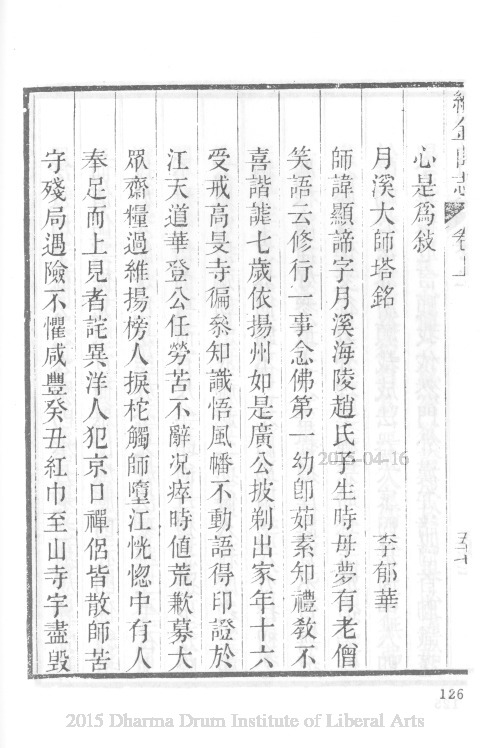 續金山志 卷上 五十七
心是爲敍
月溪大師塔銘 李郁華
師諱顯諦字月溪海陵趙氏子生時母夢有老僧
笑語云修行一事念佛第一幼卽茹素知禮教不
喜諧謔七歲依揚州如是廣公披剃出家年十六
受戒高旻寺徧叅知識悟風幡不動語得印證於
江天道華登公任勞苦不辭況瘁時值荒歉募大
眾齋糧過維揚榜人捩柁觸師墮江恍惚中有人
奉足而上見者詫異洋人犯京口禪侶皆散師苦
守殘局遇險不懼咸豐癸丑紅巾至山寺宇盡毀
126
2015-04-16
2015 Dharma Drum Institute of Liberal Arts